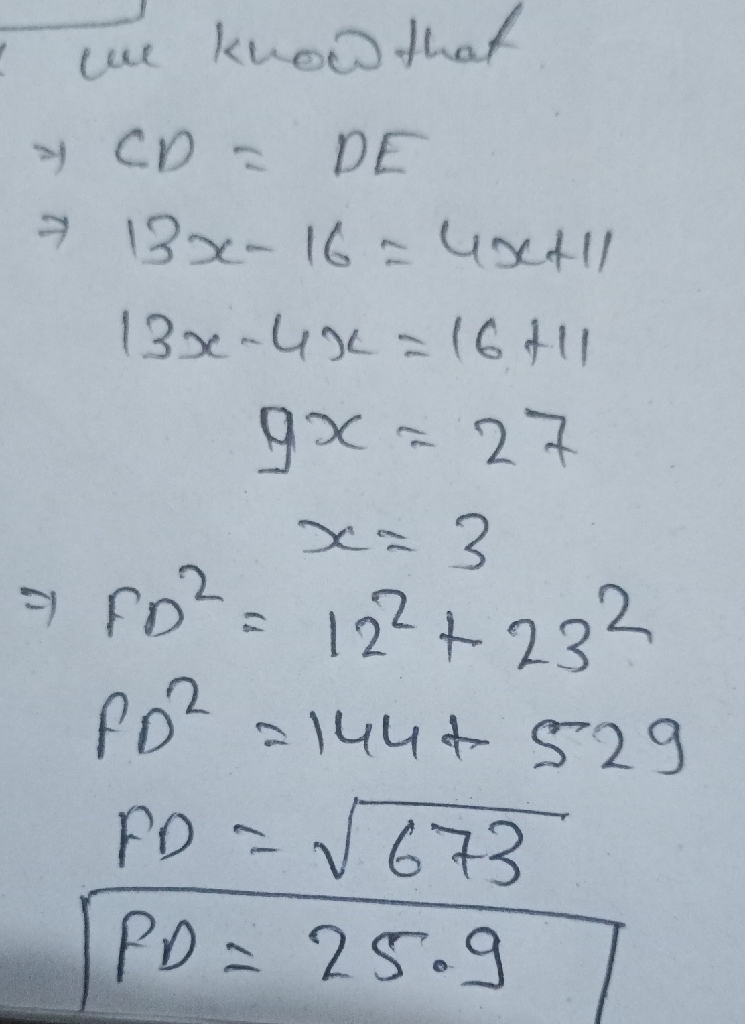 we know that
⇒ CD = DE
⇒ 13x - 16 = 4x + 11
13x - 4x = 16 + 11
9x = 27
x = 3
⇒ FD² = 12² + 23²
FD² = 144 + 529
FD = √673
FD = 25.9